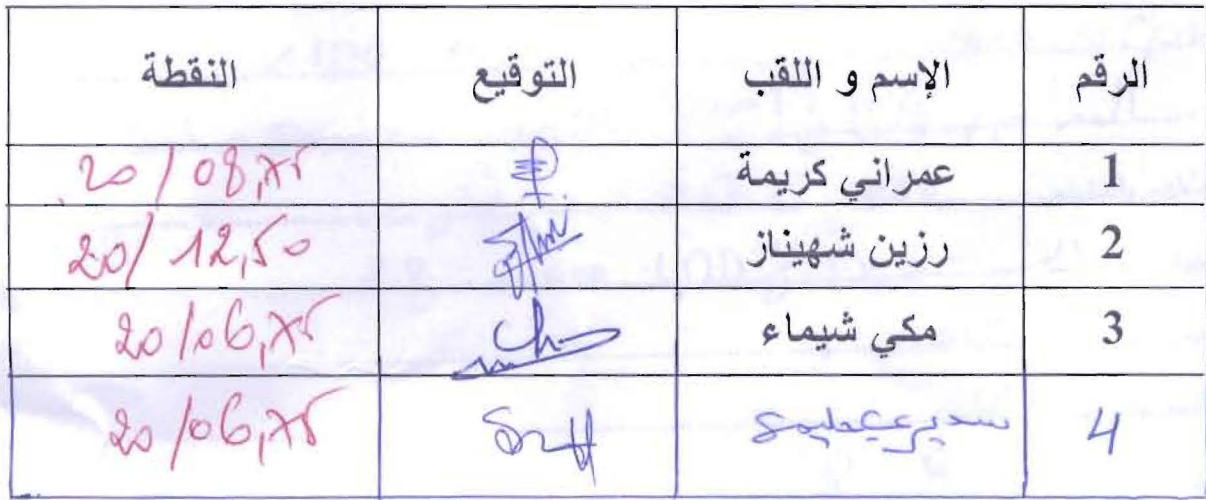 الرقم الإسم و اللقب التوقيع النقطة
1 عمراني كريمة 20/08,75
2 رزين شهيناز 20/12,50
3 مكي شيماء 20/06,75
4 20/06,75